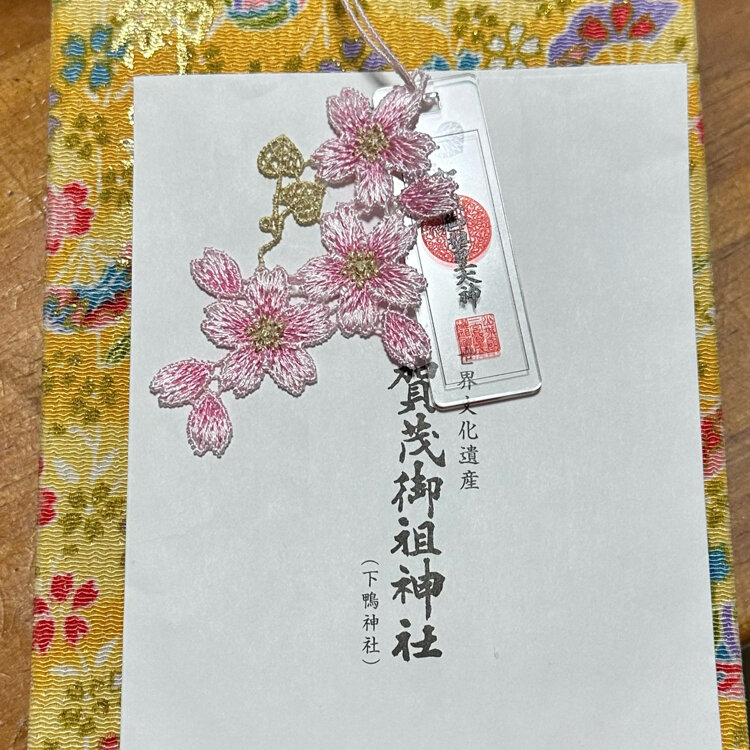 世界文化遺産
賀茂御祖神社
(下鴨神社)
大神